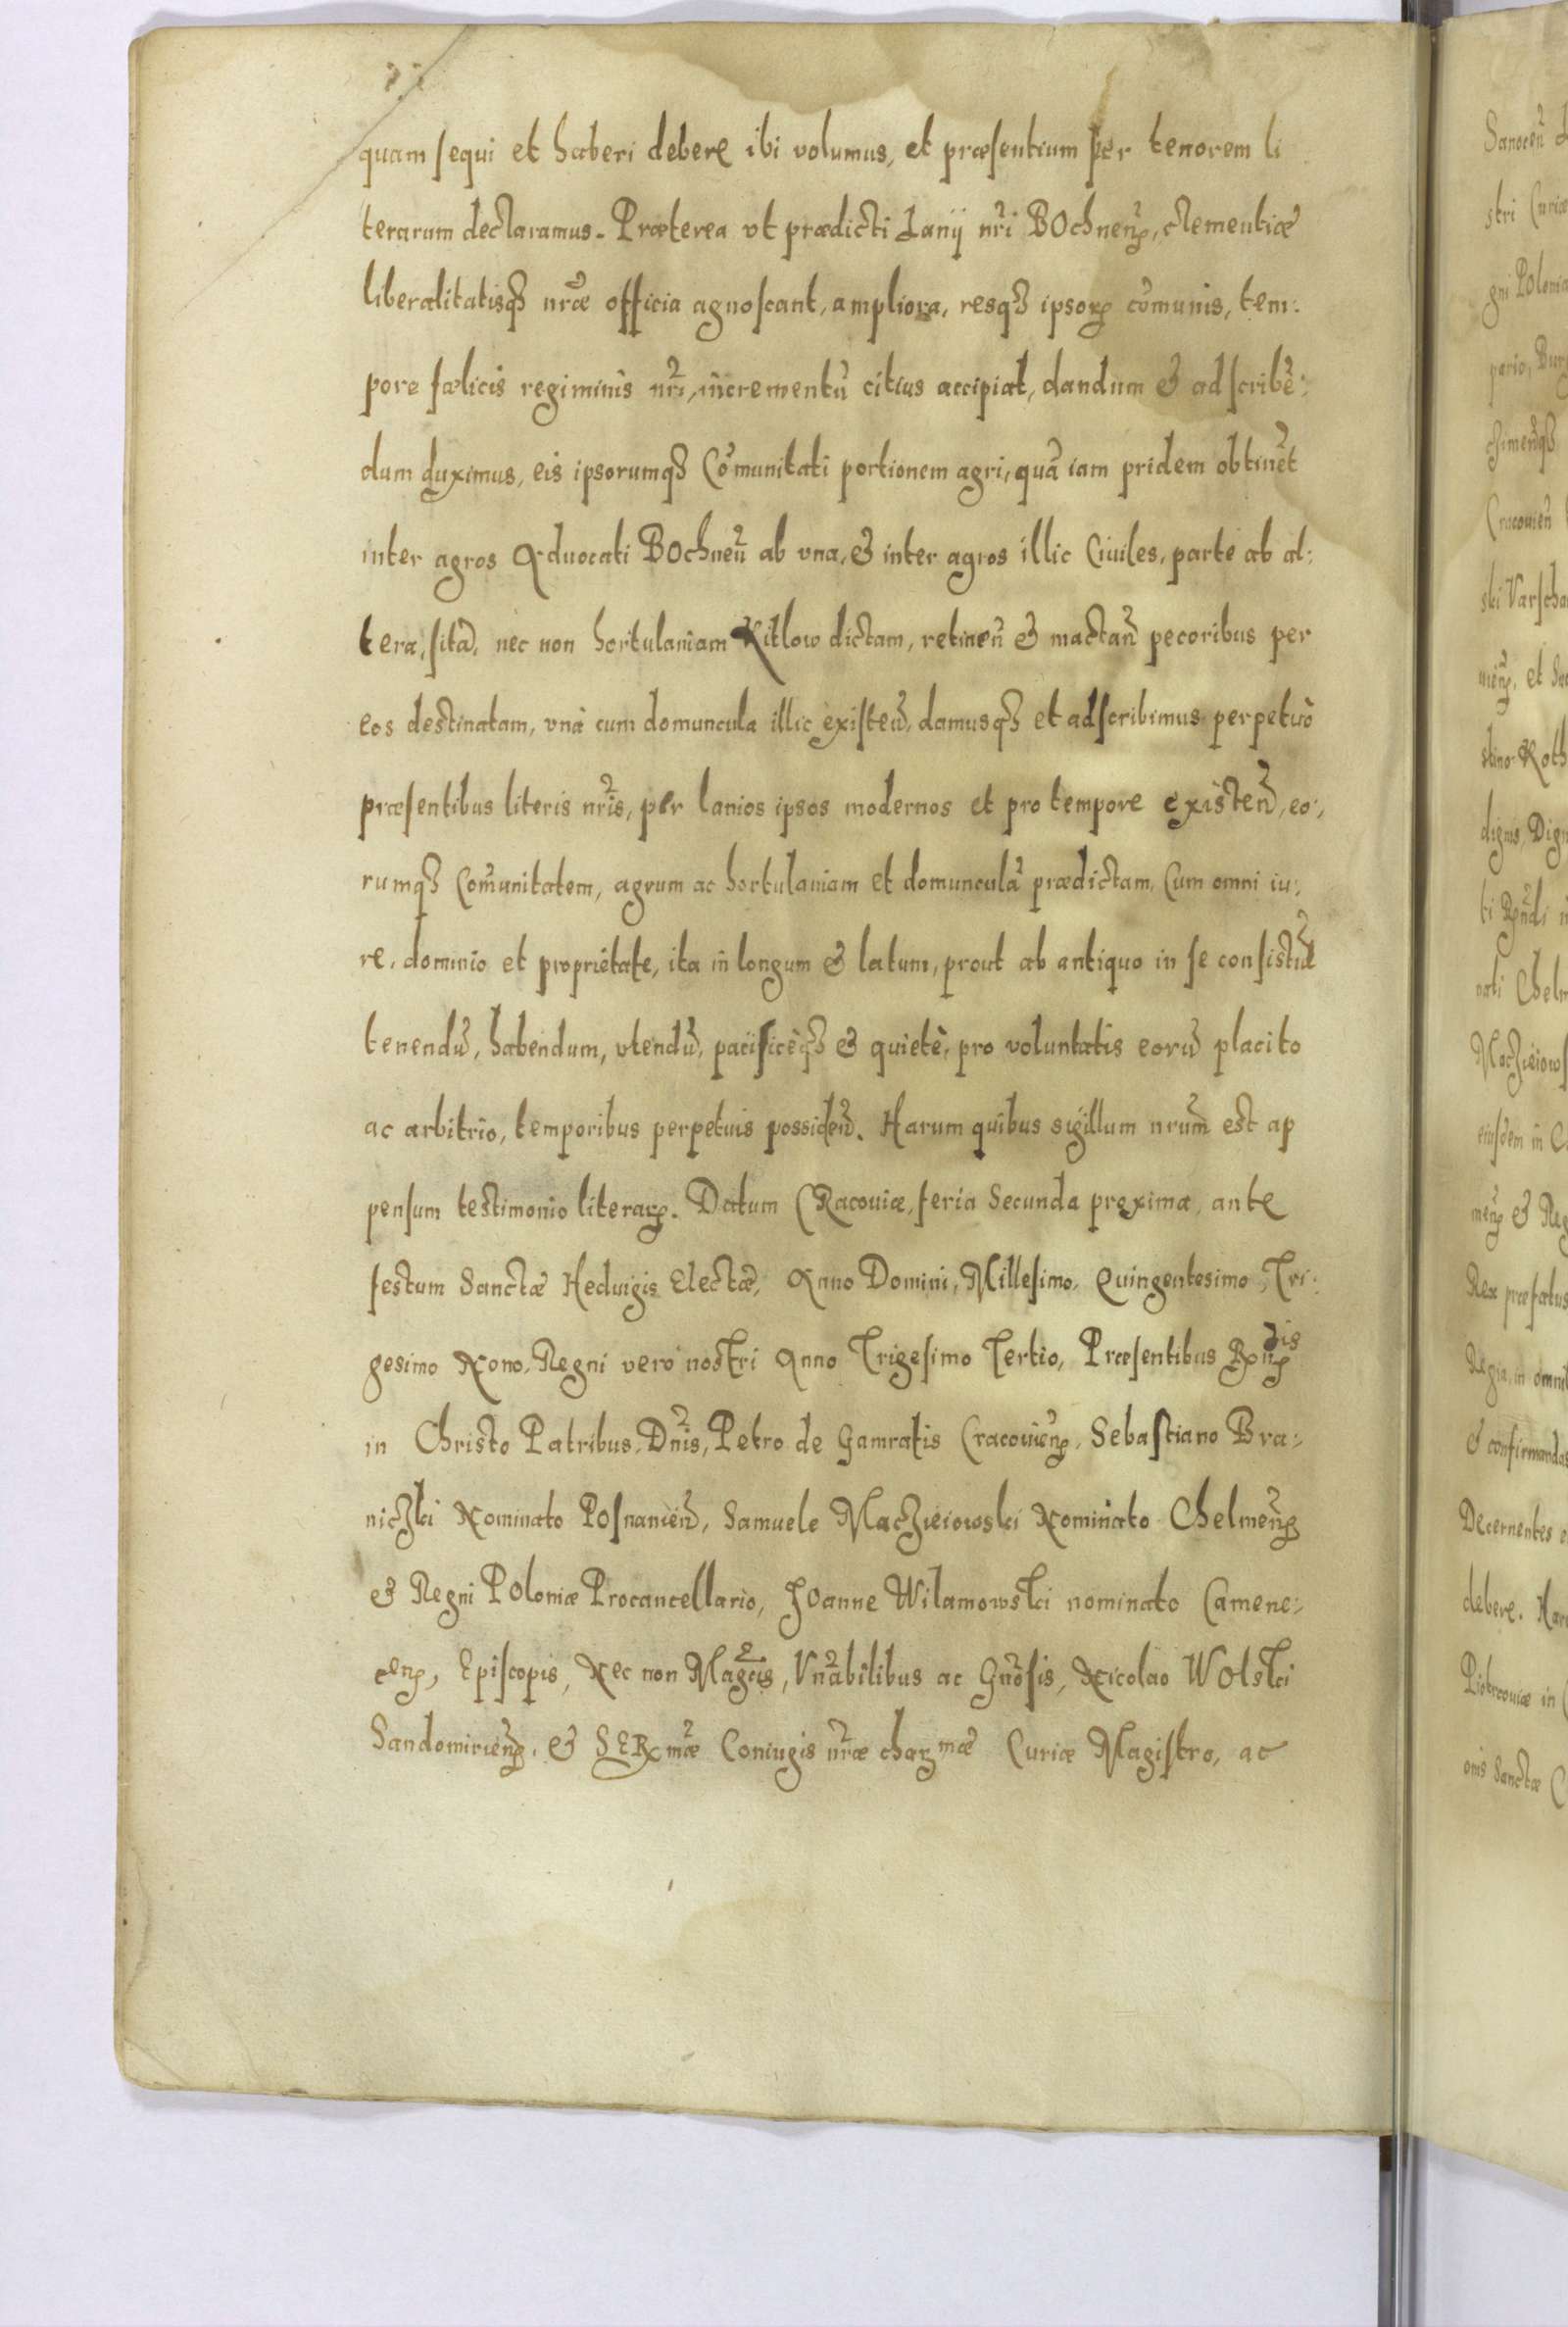 quam sequi et haberi debere ibi volumus, et præsentium per tenorem li
terarum declaramus. Præterea vt prædicti Lanij nri̅ BOchnen̅, clementiæ
liberalitatisq̃ nræ̅ officia agnoscant, ampliora, resq̃ ipsoꝝ com̅unis, tem:
pore fælicis regiminis nri̅, incrementu̅ citius accipiat, dandum & adscribe̅:
dum duximus, eis ipsorumq̃ Com̅unitati portionem agri, qua̅ iam pridem obtine̅t
inter agros Aduocati BOchnen̅ ab vna, & inter agros illic Ciuiles, parte ab al:
tera, sita̅, nec non hortulaniam Kitlow dictam, retinen̅ & mactan̅ pecoribus per
eos destinatam, vnà cum domuncula illic existen̅, damusq̃ et adscribimus perpetuò
præsentibus literis nri̅s, per lanios ipsos modernos et pro tempore existen̅, eo:
rumq̃ Com̅unitatem, agrum ac hortulaniam et domuncula̅ prædictam, Cum omni iu:
re, dominio et proprietate, ita in longum & latum, prout ab antiquo in se consistu̅t
tenendu̅, habendum, vtendu̅, pacificèq̃ & quietè, pro voluntatis eoru̅ placito
ac arbitrio, temporibus perpetuis possiden̅. Harum quibus sigillum nrum̅ est ap
pensum testimonio literaꝝ. Datum CRacouiæ, feria Secunda proxima, ante
festum Sanctæ Heduigis Electæ, Anno Domini, Millesimo, Quingentesimo, Tri:
gesimo Nono, Regni verò nostri Anno Trigesimo Tertio, Præsentibus Rn̅dis
in Christo Patribus, Dn̅is, Petro de Gamratis Cracouien̅, Sebastiano Bra:
niczki Nominato Posnanien̅, Samuele Maczieiowski Nominato Chelmen̅
& Regni POloniæ Procancellario, JOanne Wilamowski nominato Camene:
cen̅, Episcopis, Nec non Magcis̅, Vn̅abilibus ac Gn̅osis, Nicolao WOlski
Sandomirien̅, & SERmæ̅ Coniugis nræ̅ charmæ Curiæ Magistro, ac
Sanocen̅
stri Curiæ
gni POlonia
ski Varscha
dignis, Dign
nati Chelm
Maczieiows
eiusdem in C
& Reg
Rex præfatus
Regia, in omnib
& confirmandas
Decernentes e
debere. Haru
Piotrcouiæ in
onis Sanctæ C